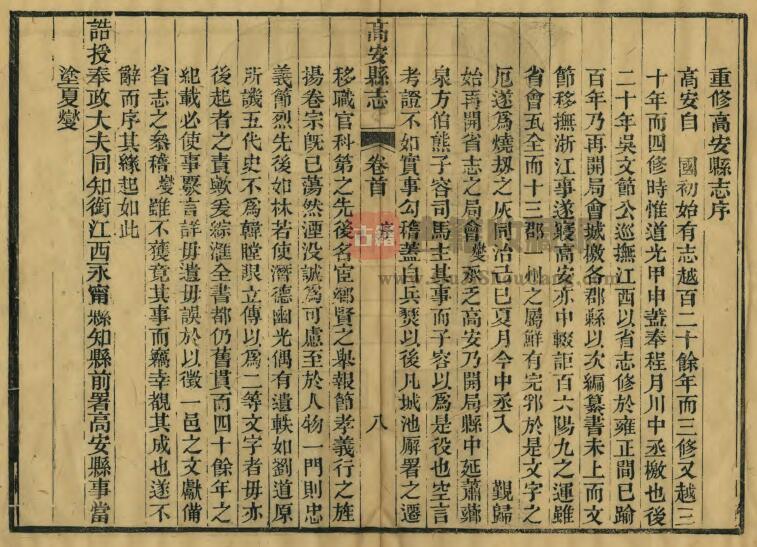 重修高安縣志序
高安自 國初始有志越百二十餘年而三修又越三
十年而四修時惟道光甲申蓋奉程月川中丞檄也後
二十年吳文節公巡撫江西以省志修於雍正間已踰
百年乃再開局會城檄各郡縣以次編纂書未上而文
節移撫浙江事遂寢高安亦中輟詎百六陽九之運雖
省會瓦全而十三郡一州之屬鮮有完邪於是文字之
厄遂爲燒刼之灰同治己巳夏月今中丞入 覲歸
始再開省志之局會燮承乏高安乃開局縣中延蕭蘋
泉方伯熊子容司馬主其事而子容以爲是役也空言
考證不如實事勾稽蓋自兵燹以後凡城池廨署之遷
高安縣志 卷首 序 八
移職官科第之先後名宦鄉賢之舉報節孝義行之旌
揚卷宗旣已蕩然湮没誠爲可慮至於人物一門則忠
義節烈先後如林若使潛德幽光偶有遺軼如劉道原
所譏五代史不爲韓瞠眼立傳以爲二等文字者毋亦
後起者之責歟爰綜滙全書都仍舊貫而四十餘年之
紀載必使事覈言詳毋遺毋誤於以徵一邑之文獻備
省志之叅稽燮雖不獲竟其事而竊幸覩其成也遂不
辭而序其緣起如此
誥授奉政大夫同知銜江西永甯縣知縣前署高安縣事當
塗夏燮
古籍